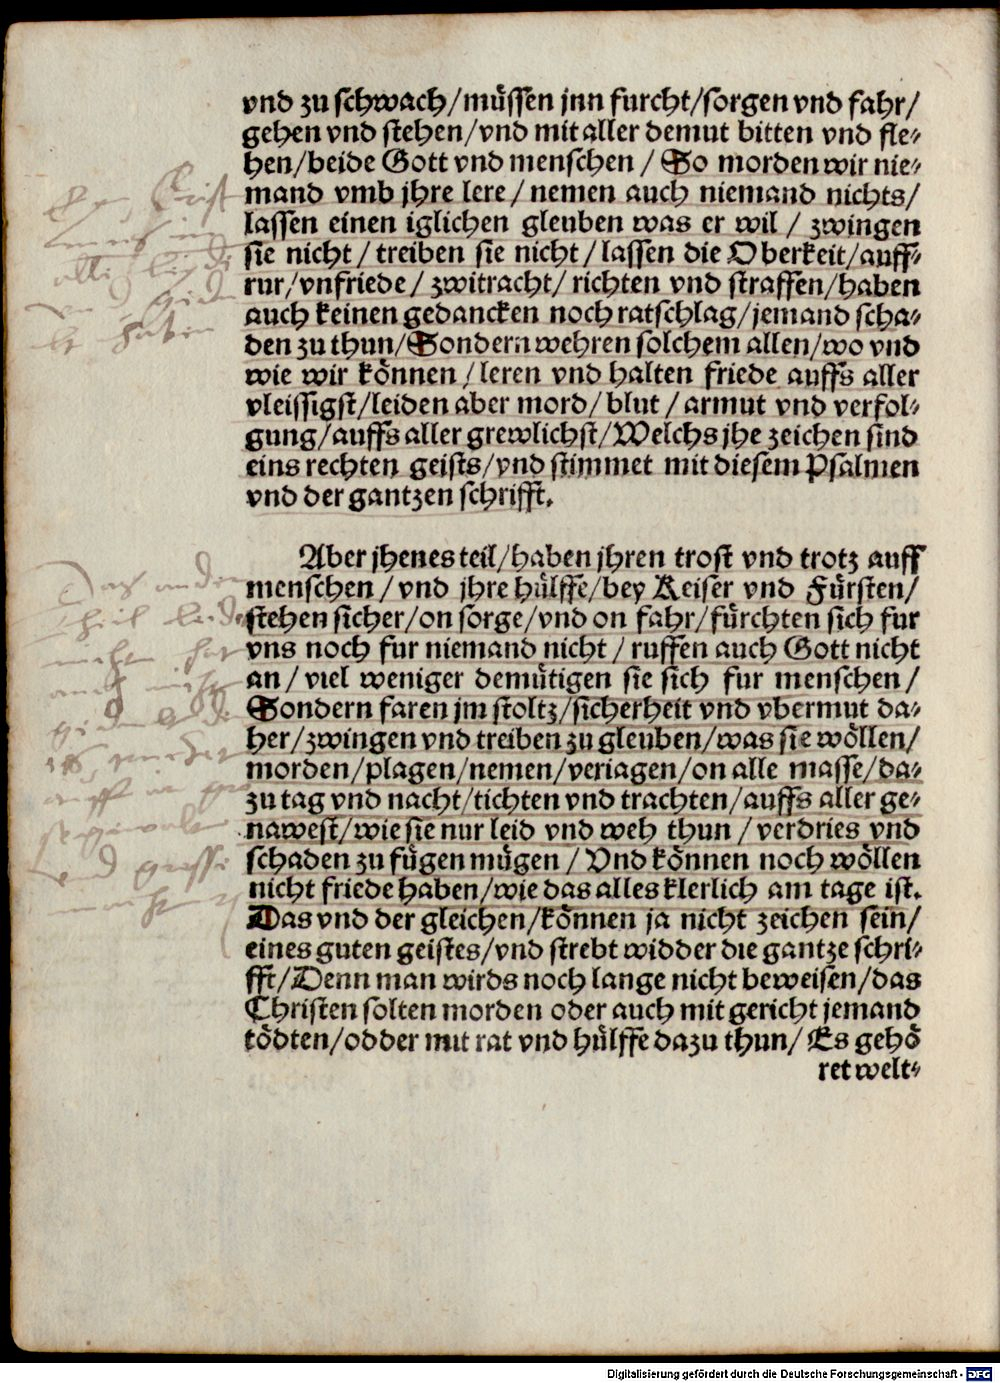 vnd zu schwach/müssen jnn furcht/sorgen vnd fahr/
gehen vnd stehen/vnd mit aller demut bitten vnd fle⸗
hen/beide Gott vnd menschen / So morden wir nie⸗
mand vmb jhre lere / nemen auch niemand nichts/
lassen einen iglichen gleuben was er wil / zwingen
sie nicht / treiben sie nicht / lassen die Oberkeit/auff⸗
rur/vnfriede / zwitracht/ richten vnd straffen/haben
auch keinen gedancken noch ratschlag/jemand scha⸗
den zu thun/Sondern wehren solchem allen/wo vnd
wie wir können / leren vnd halten friede auffs aller
vleissigst/leiden aber mord/ blut / armut vnd verfol⸗
gung/auffs aller grewlichst/Welchs jhe zeichen sind
eins rechten geists/vnd stimmet mit diesem Psalmen
vnd der gantzen schrifft.
Aber jhenes teil/haben jhren trost vnd trotz auff
menschen / vnd jhre hülffe/bey Keiser vnd Fürsten/
stehen sicher/on sorge/vnd on fahr/fürchten sich fur
vns noch fur niemand nicht / ruffen auch Gott nicht
an / viel weniger demütigen sie sich fur menschen /
Sondern faren jm stoltz/sicherheit vnd vbermut da⸗
her/zwingen vnd treiben zu gleuben/was sie wöllen/
morden/plagen/nemen/veriagen/on alle masse/da⸗
zu tag vnd nacht/tichten vnd trachten/auffs aller ge⸗
nawest/wie sie nur leid vnd weh thun / verdries vnd
schaden zu fügen mügen / Vnd können noch wöllen
nicht friede haben/wie das alles klerlich am tage ist.
Das vnd der gleichen/können ja nicht zeichen sein/
eines guten geistes/vnd strebt widder die gantze schri⸗
fft/Denn man wirds noch lange nicht beweisen/das
Christen solten morden oder auch mit gericht jemand
tödten/odder mit rat vnd hülffe dazu thun/ Es gehö
ret welt⸗
Das ander
Theil
nicht
auch nicht
vnd grosse
Digitalisierung gefördert durch die Deutsche Forschungsgemeinschaft - DFG